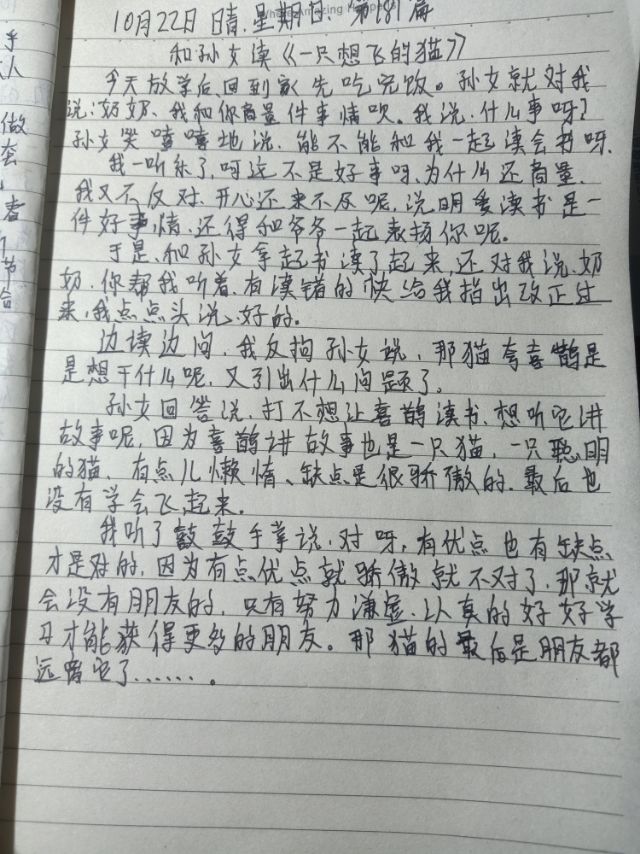 10月22日 晴.星期日. 第181篇
和孙女读《一只想飞的猫》
今天放学后、回到家先吃完饭。孙女就对我
说:奶奶、我和你商量件事情呗。我说.什么事呀?
孙女笑嘻嘻地说.能不能和我一起读会书呀.
我一听乐了.呵这不是好事吗.为什么还商量.
我又不反对.开心还来不及呢.说明爱读书是一
件好事情.还得和爷爷一起表扬你呢。
于是.和孙女拿起书读了起来.还对我说.奶
奶.你帮我听着.有读错的快给我指出改正过
来.我点点头说.好的.
边读边问.我反拘孙女说.那猫夸喜鹊是
是想干什么呢.又引出什么问题了.
孙女回答说.打不想让喜鹊读书.想听它讲
故事呢.因为喜鹊讲故事也是一只猫.一只聪明
的猫.有点儿懒惰、缺点是很骄傲的.最后也
没有学会飞起来.
我听了鼓鼓手掌说.对呀.有优点也有缺点
才是对的.因为有点优点就骄傲就不对了.那就
会没有朋友的.只有努力谦虚.认真的好好学
习才能获得更多的朋友。那猫的最后是朋友都
远离它了.......。
手
认
做
套
者
节
合